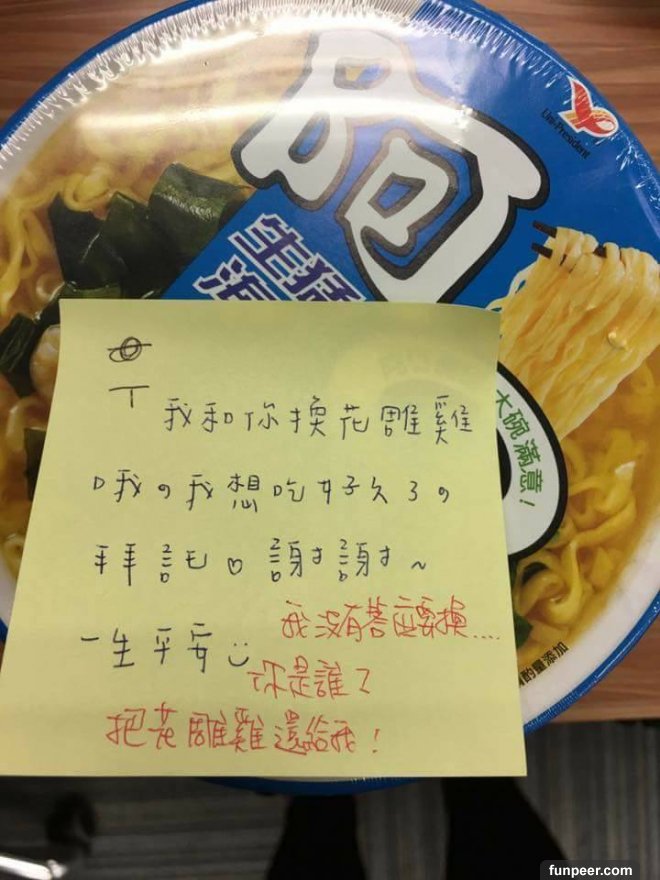 Uni-President
阿
生猛
海
大碗滿意！
我和你換花雕雞
哦。我想吃好久了。
拜託♡謝謝~
一生平安
我沒有答應要換....
你是誰？
把花雕雞還給我！
酌量添加
funpeer.com